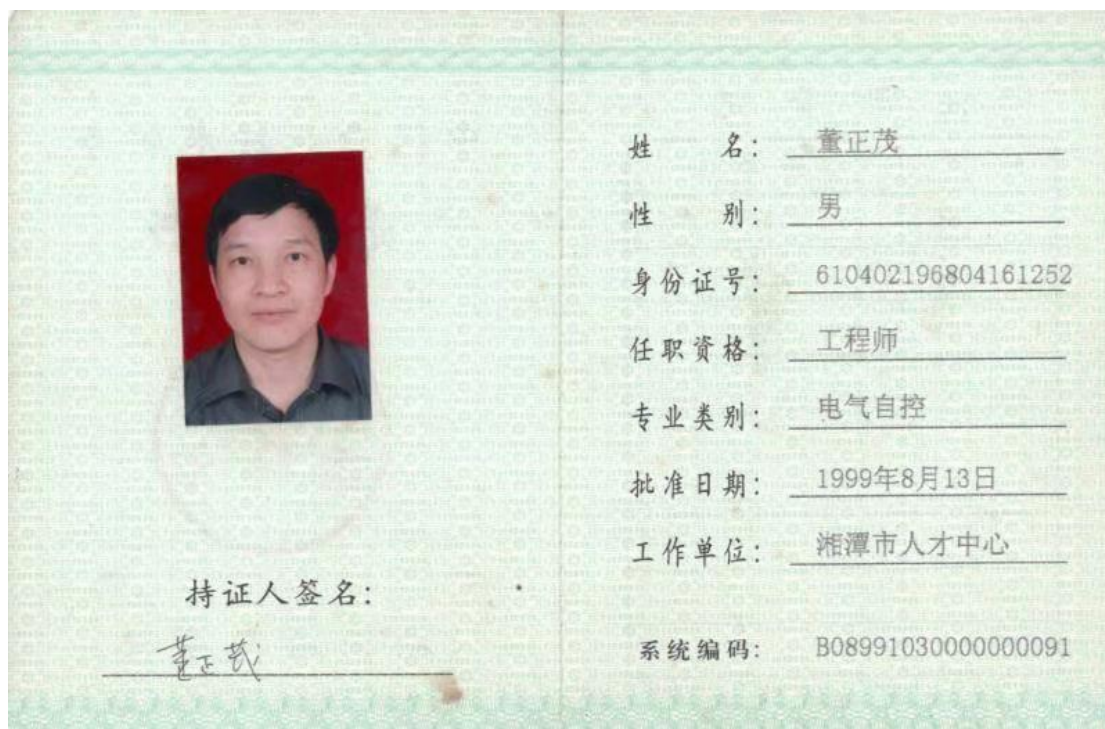 持证人签名：
董正茂
姓 名： 董正茂
性 别： 男
身份证号： 610402196804161252
任职资格： 工程师
专业类别： 电气自控
批准日期： 1999年8月13日
工作单位： 湘潭市人才中心
系统编码： B08991030000000091